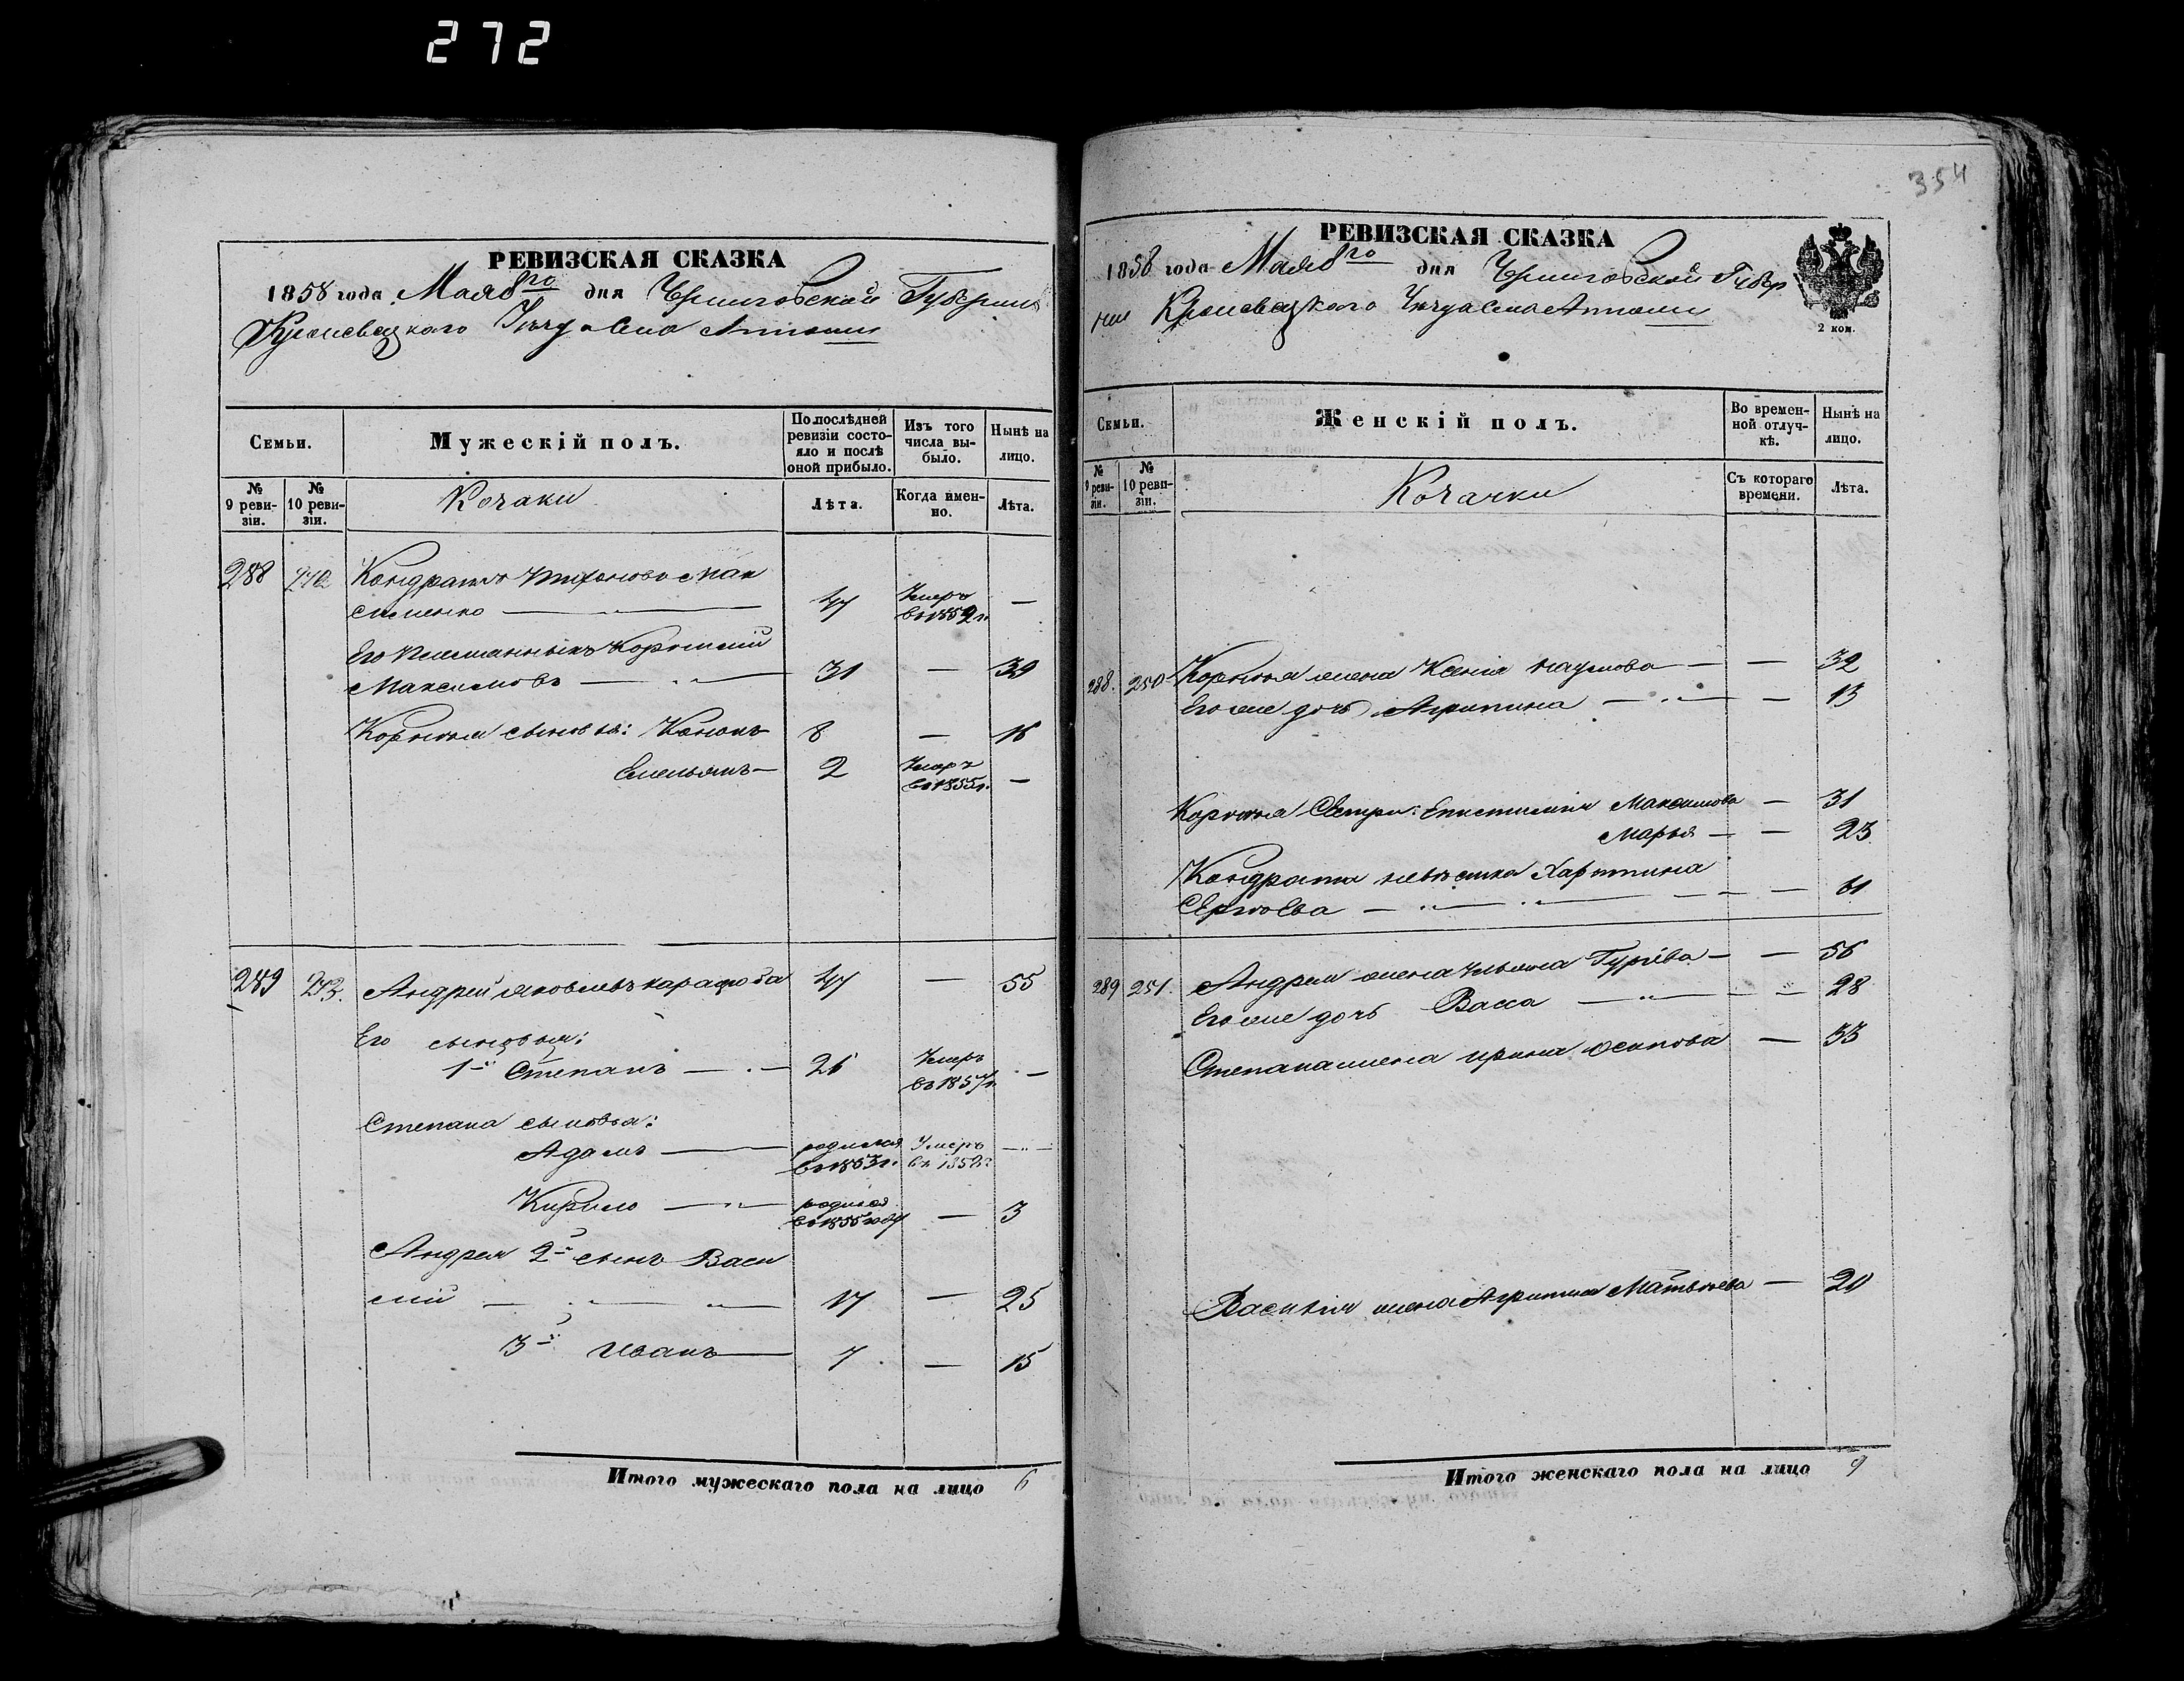 272
РЕВИЗСКАЯ СКАЗКА
1858 года Мая 8го дня Черниговской Губернiи
Кролевецкаго Уѣзда Села
Семьи.
Мужескій полъ.
По послѣдней ревизіи состояло и послѣ оной прибыло.
Изъ того числа выбыло.
Нынѣ на лицо.
№ 9 ревизіи.
№ 10 ревизіи.
Козаки
Лѣта.
Когда именно.
Лѣта.
288 Кондратъ Мак
сименко 47 Умеръ —
Его Племянникъ Корнилій
Максимовъ — 31 — 39
Корнилія сыновья: Кононъ 8 — 16
Емельянъ — 2 Умеръ въ 1855 г. —
289 Андрей Яковлевъ 47 — 55
Его сыновья:
1й Степанъ — 26 Умеръ въ 1857 г. —
Степана сыновья:
Адамъ — родился Умеръ —
Кирило — родился въ 1855 году — 3
Андрея 2й сынъ Васи
лій — 17 — 25
3й Иванъ — 7 — 15
Итого мужескаго пола на лицо 6
354
РЕВИЗСКАЯ СКАЗКА
1858 года Мая 8го дня Черниговской Губер
ніи Кролевецкаго Уѣзда Села
2 коп.
Семьи.
Женскій полъ.
Во временной отлучкѣ.
Нынѣ на лицо.
№ 9 ревизіи.
№ 10 ревизіи.
Козачки
Съ котораго времени.
Лѣта.
288. 250 Корнилія жена Ксенія Наумова — — 32
Его же дочь Агрипина — — 13
Корнилія Сестры: Епистимія Максимова — 31
Марья — — 23
Кондрата невѣстка Харитина
Сергѣева — — 61
289 251. Андрея жена Ульяна Гурiева — — 56
Его же дочь Васса — — 28
Степана жена Ирина Осипова — 33
Василія жена Агрипина Матвѣева — 20
Итого женскаго пола на лицо 9